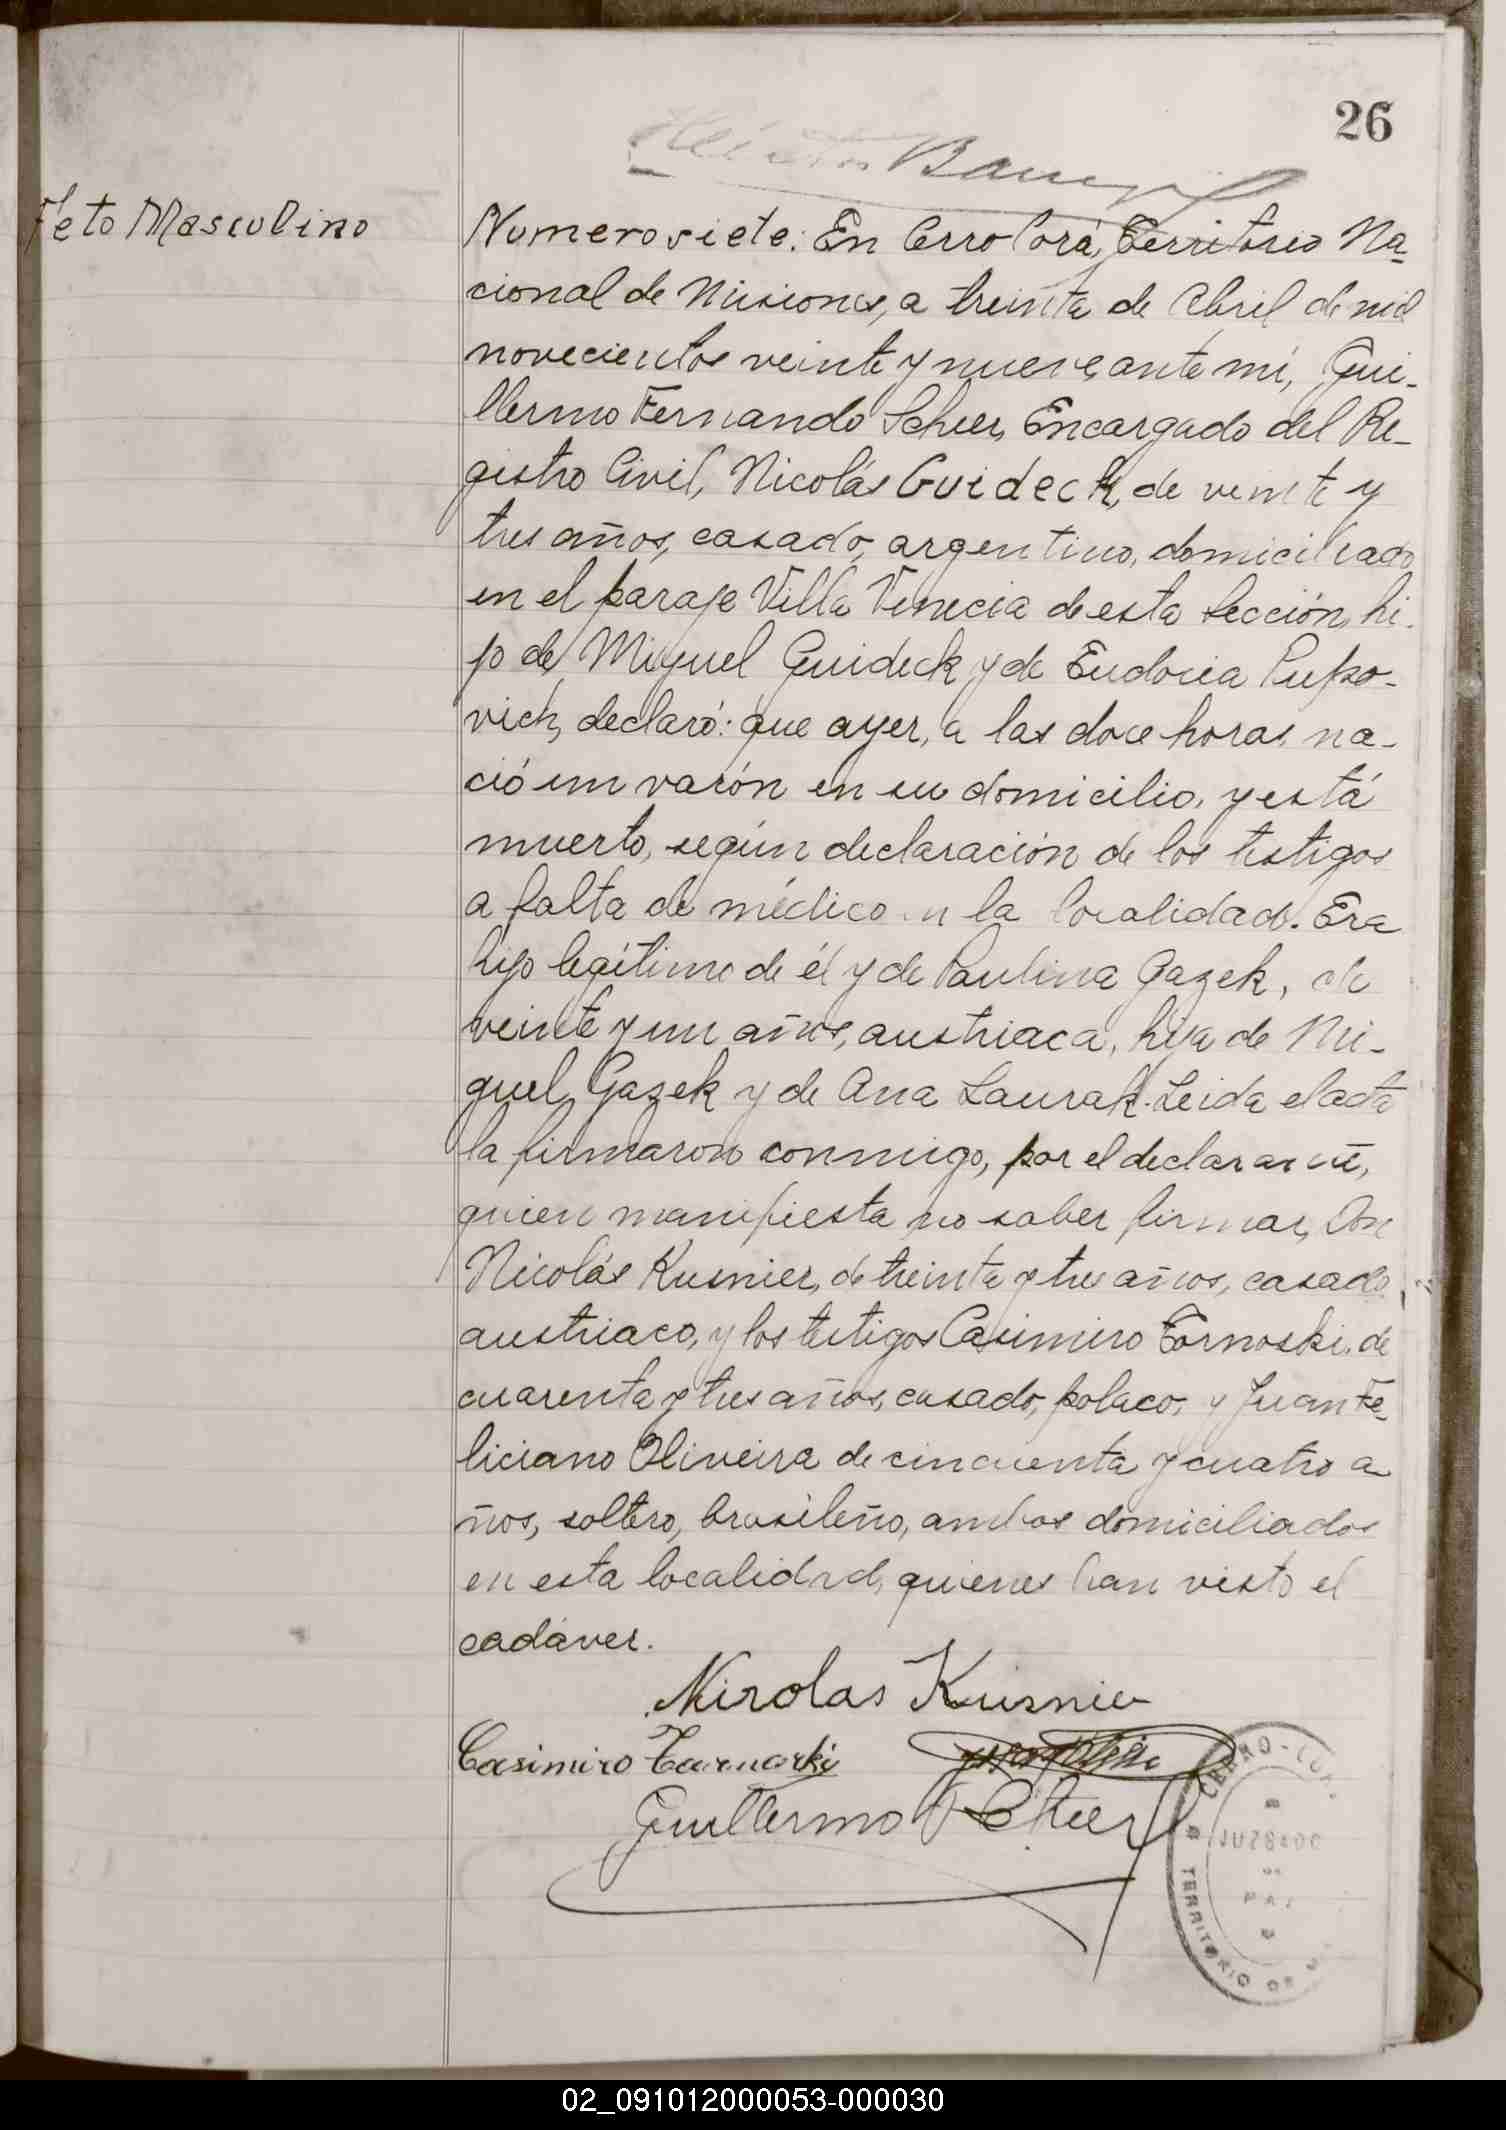 26
Feto Masculino
Numero siete: En Cerro Corá, Territorio Na-
cional de Misiones, a treinta de Abril de mil
novecientos veinte y nueve, ante mi, Gui-
llermo Fernando Scheer, Encargado del Re-
gistro Civil, Nicolás Guideck, de veinte y
tres años, casado, argentino, domiciliado
en el paraje Villa Venecia de esta Sección, hi-
jo de Miguel Guideck y de Eudocia Pupko-
vich, declaró: que ayer, a las doce horas na-
ció un varón en su domicilio, y está
muerto, según declaración de los testigos
a falta de médico en la localidad. Era
hijo legítimo de él y de Paulina Gazek, de
veinte y un años, austriaca, hija de Mi-
guel Gazek y de Ana Laurak. Leida el acta
la firmaron conmigo, por el declarante,
quien manifiesta no saber firmar, Don
Nicolás Kusnier, de treinta y tres años, casado,
austriaco, y los testigos Casimiro Tornoski, de
cuarenta y tres años, casado, polaco, y Juan Fe-
liciano Oliveira de cincuenta y cuatro a
ños, soltero, brasileño, ambos domiciliados
en esta localidad, quienes han visto el
cadáver.
Nicolas Kusnier
Casimiro Tarnarki
Guillermo F Scheer
CERRO-COR
JUZGADO
DE
PAZ
TERRITORIO DE
02_091012000053-000030